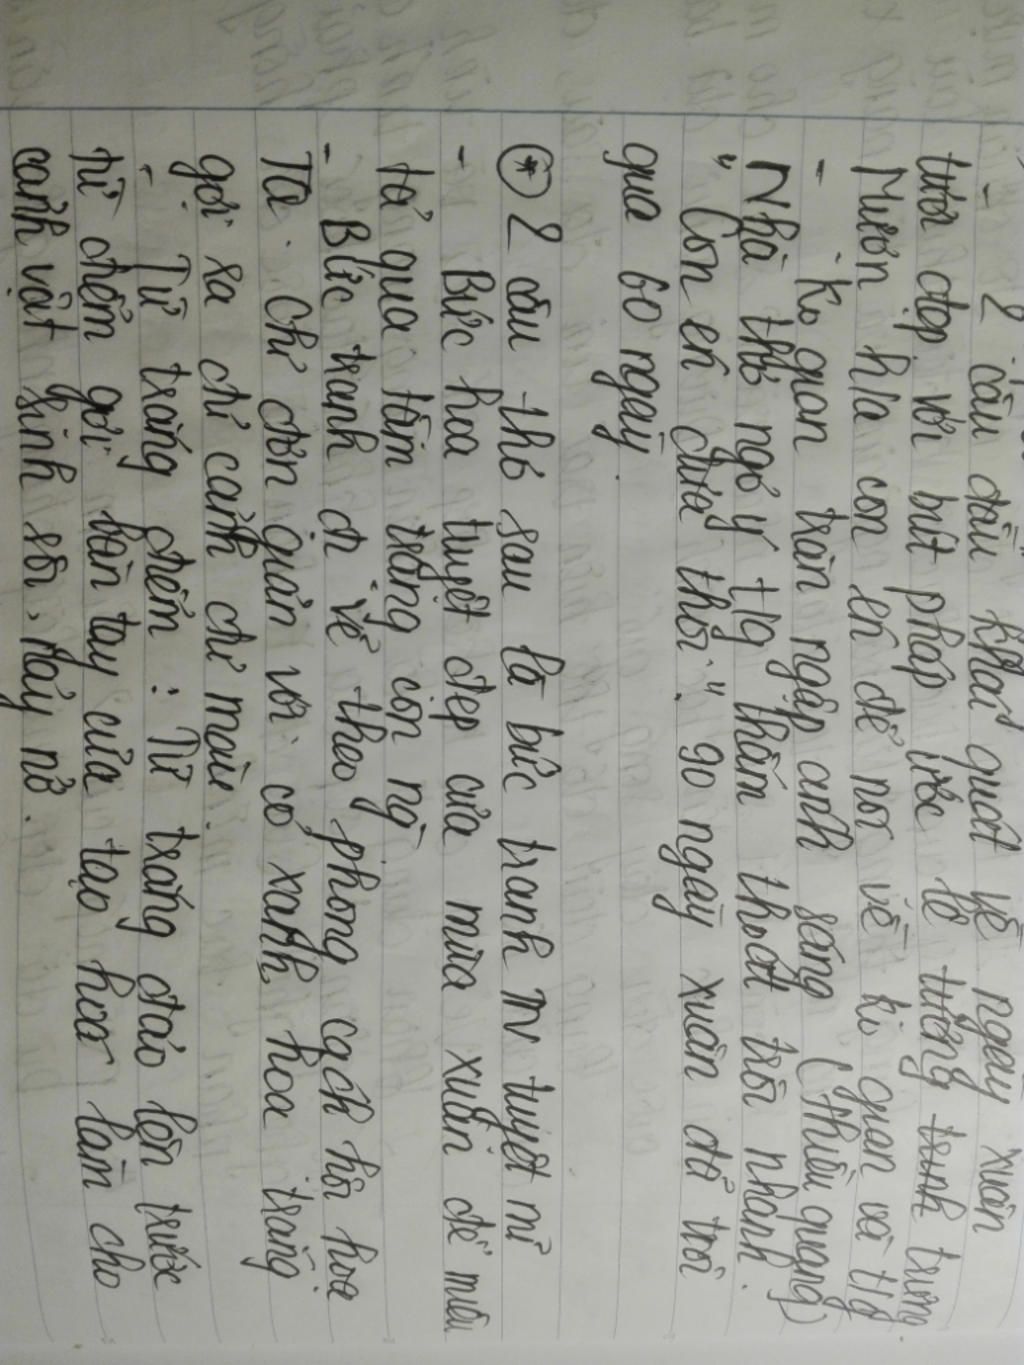 - 2 câu đầu khái quát về ngày xuân
tươi đẹp với bút pháp ước lệ tượng trưng
Mượn h/a con én để nói về k. gian và t/g
- Ko gian tràn ngập ánh sáng (thiều quang)
Nhà thơ ngỏ ý t/g thấm thoắt trôi nhanh.
" Con én đưa thoi". 90 ngày xuân đã trôi
qua 60 ngày.
* 2 câu thơ sau là bức tranh TN tuyệt mĩ
- Bức họa tuyệt đẹp của mùa xuân để miêu
tả qua tâm trạng con ng`
- Bức tranh đc vẽ theo phong cách hội họa
Tàu. Chỉ đơn giản với cỏ xanh, hoa trắng
gợi ra đc cảnh đc màu.
- Từ trắng điểm : Từ trắng đảo lên trước
từ điểm gợi bàn tay của tạo hóa làm cho
cảnh vật sinh sôi, nảy nở.